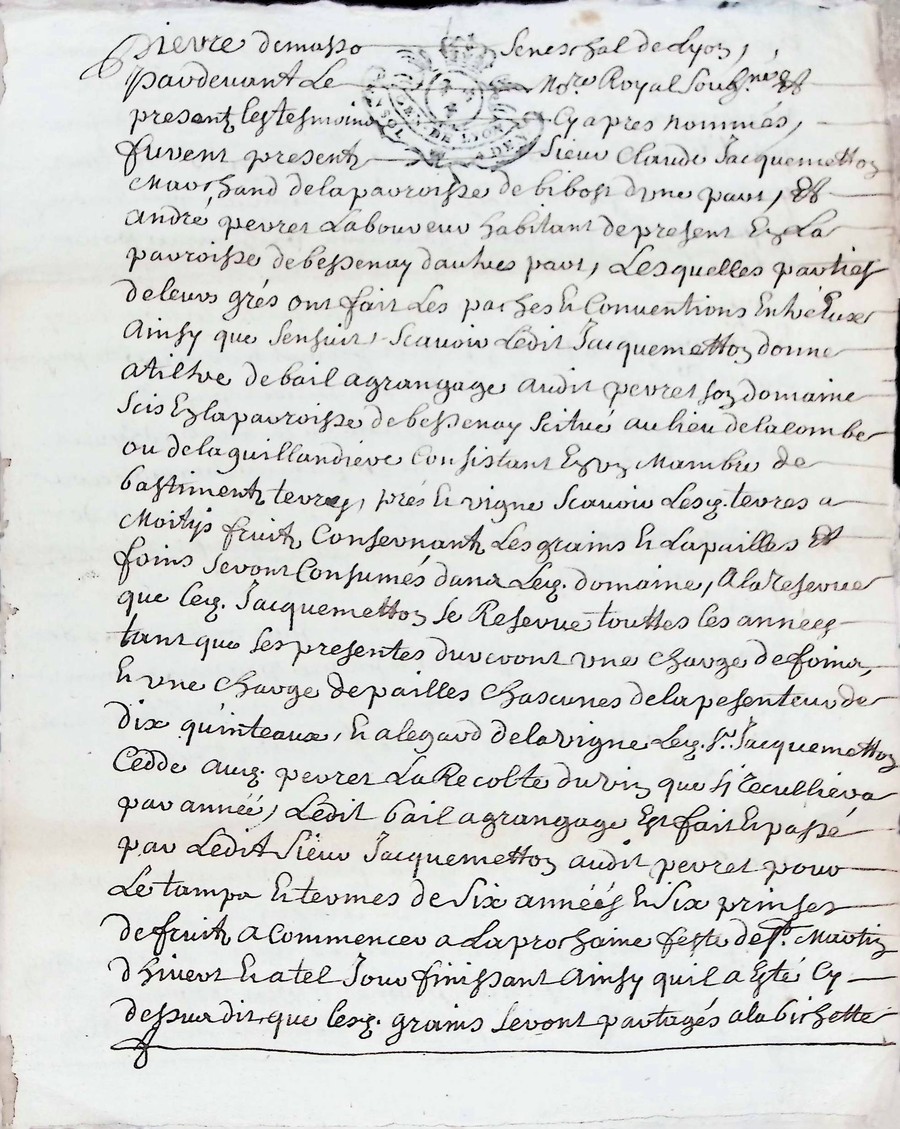 Pierre demasso Seneschal de Lyon,
pardevant Le No.re Royal Soubs.né Et
presentz les tesmoins Cy apres nommés,
GEN. DE LYON
furent presentz Sieur Claude Jacquemetton
Marchand de la parroisse de bibost d'une part, Et
andré pevret Laboureur habitant de present En La
parroisse de bessenay d'autres part, Lesquelles parties
de leurs grés ont fait Les paches Et Conventions Entré Eux
Ainsy que sensuit, Scavoir Ledit Jacquemetton donne
atiltre de bail a grangage audit pevret son domaine
Scis En la parroisse de bessenay Scitué au lieu de la combe
ou de la guillandiere Consistant En un Mambre de
bastimentz terres, prés Et vigne Scavoir Lesd. terres a
Moitys fruitz Consernantz Les grains Et La pailles Et
foins Seront Consumés dans Led. domaine, A la reserve
que led. Jacquemetton Se Reserve touttes les années
tant que Ses presentes durront une charge de foins,
Et une charge de pailles chascunes de la pesenteur de
dix quinteaux, Et a legard de la vigne Led. S.r Jacquemetton
Cedde aud. pevret La Recolte du vin que sy recullira
par année, Ledit bail a grangage Est fait Et passé
par Ledit Sieur Jacquemetton audit pevret pour
Le tamps Et termes de Six années Et Six prinses
de fruitz a Commencer a La prochaine feste de S.t Martin
d'hivert Et a tel Jour finissant Ainsy quil a Esté Cy
dessus dit, que lesd. grains Seront partagés a la bichette